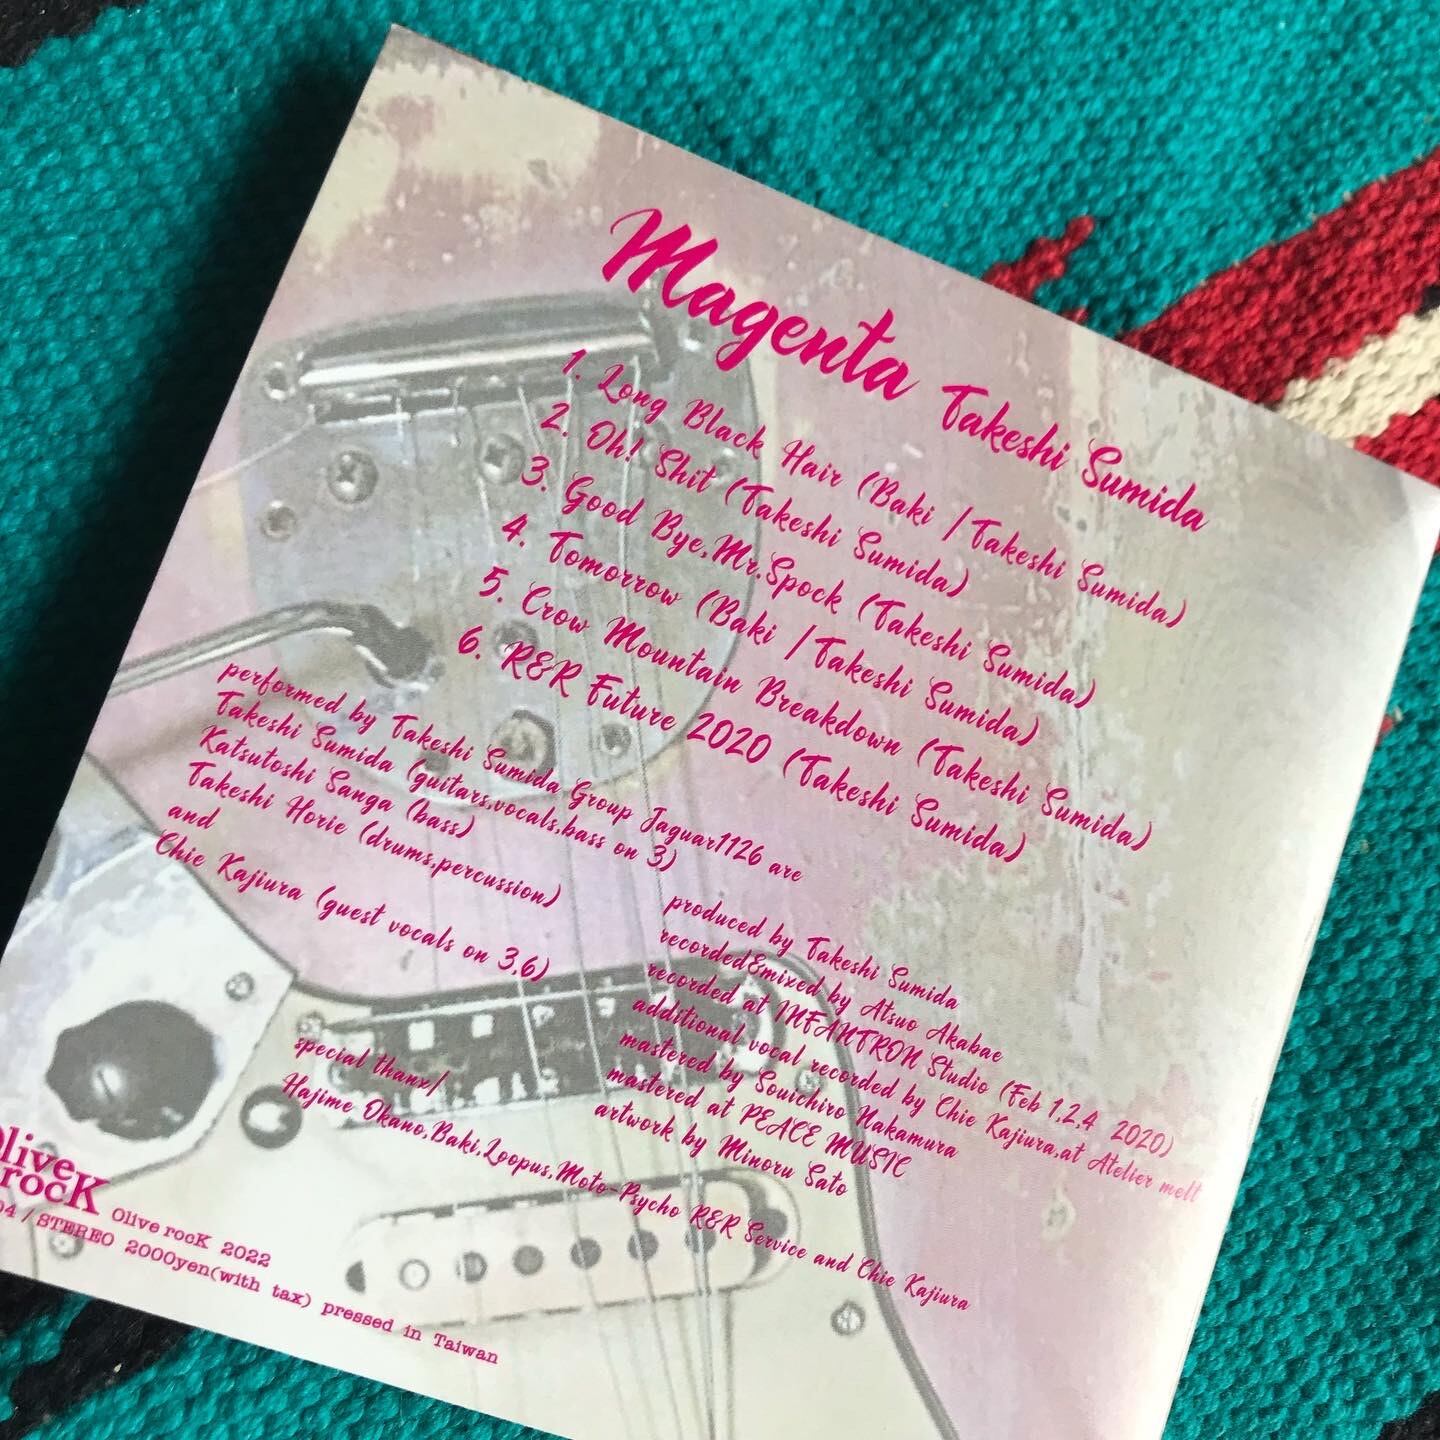 Magenta Takeshi Sumida
1. Long Black Hair (Baki / Takeshi Sumida)
2. Oh! Shit (Takeshi Sumida)
3. Good Bye,Mr.Spock (Takeshi Sumida)
4. Tomorrow (Baki / Takeshi Sumida)
5. Crow Mountain Breakdown (Takeshi Sumida)
6. R&R Future 2020 (Takeshi Sumida)
performed by Takeshi Sumida Group Jaguar1126 are
Takeshi Sumida (guitars,vocals,bass on 3)
Katsutoshi Sanga (bass)
Takeshi Horie (drums,percussion)
and
Chie Kajiura (guest vocals on 3,6)
produced by Takeshi Sumida
recorded&mixed by Atsuo Akabae
recorded at INFANTRON Studio (Feb 1,2,4 2020)
additional vocal recorded by Chie Kajiura,at Atelier melt
mastered by Souichiro Nakamura
mastered at PEACE MUSIC
artwork by Minoru Sato
special thanx/
Hajime Okano,Baki,Loopus,Moto-Psycho R&R Service and Chie Kajiura
Olive
rocK Olive rocK 2022
04 / STEREO 2000yen(with tax) pressed in Taiwan